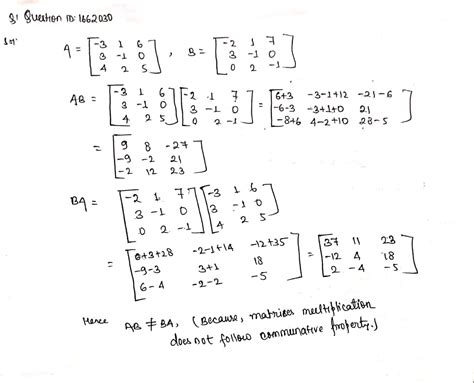 Q! Question ID: 1662030
Sol:
A = [-3 1 6; 3 -1 0; 4 2 5], B = [-2 1 7; 3 -1 0; 0 2 -1]
AB = [-3 1 6; 3 -1 0; 4 2 5] [-2 1 7; 3 -1 0; 0 2 -1] = [6+3 -3-1+12 -21-6; -6-3 -3+1+0 21; -8+6 4-2+10 28-5]
= [9 8 -27; -9 -2 21; -2 12 23]
BA = [-2 1 7; 3 -1 0; 0 2 -1] [-3 1 6; 3 -1 0; 4 2 5]
= [6+3+28 -2-1+14 -12+35; -9-3 3+1 18; 6-4 -2-2 -5] = [37 11 23; -12 4 18; 2 -4 -5]
Hence AB ≠ BA, (Because, matrices multiplication
does not follow commutative property.)